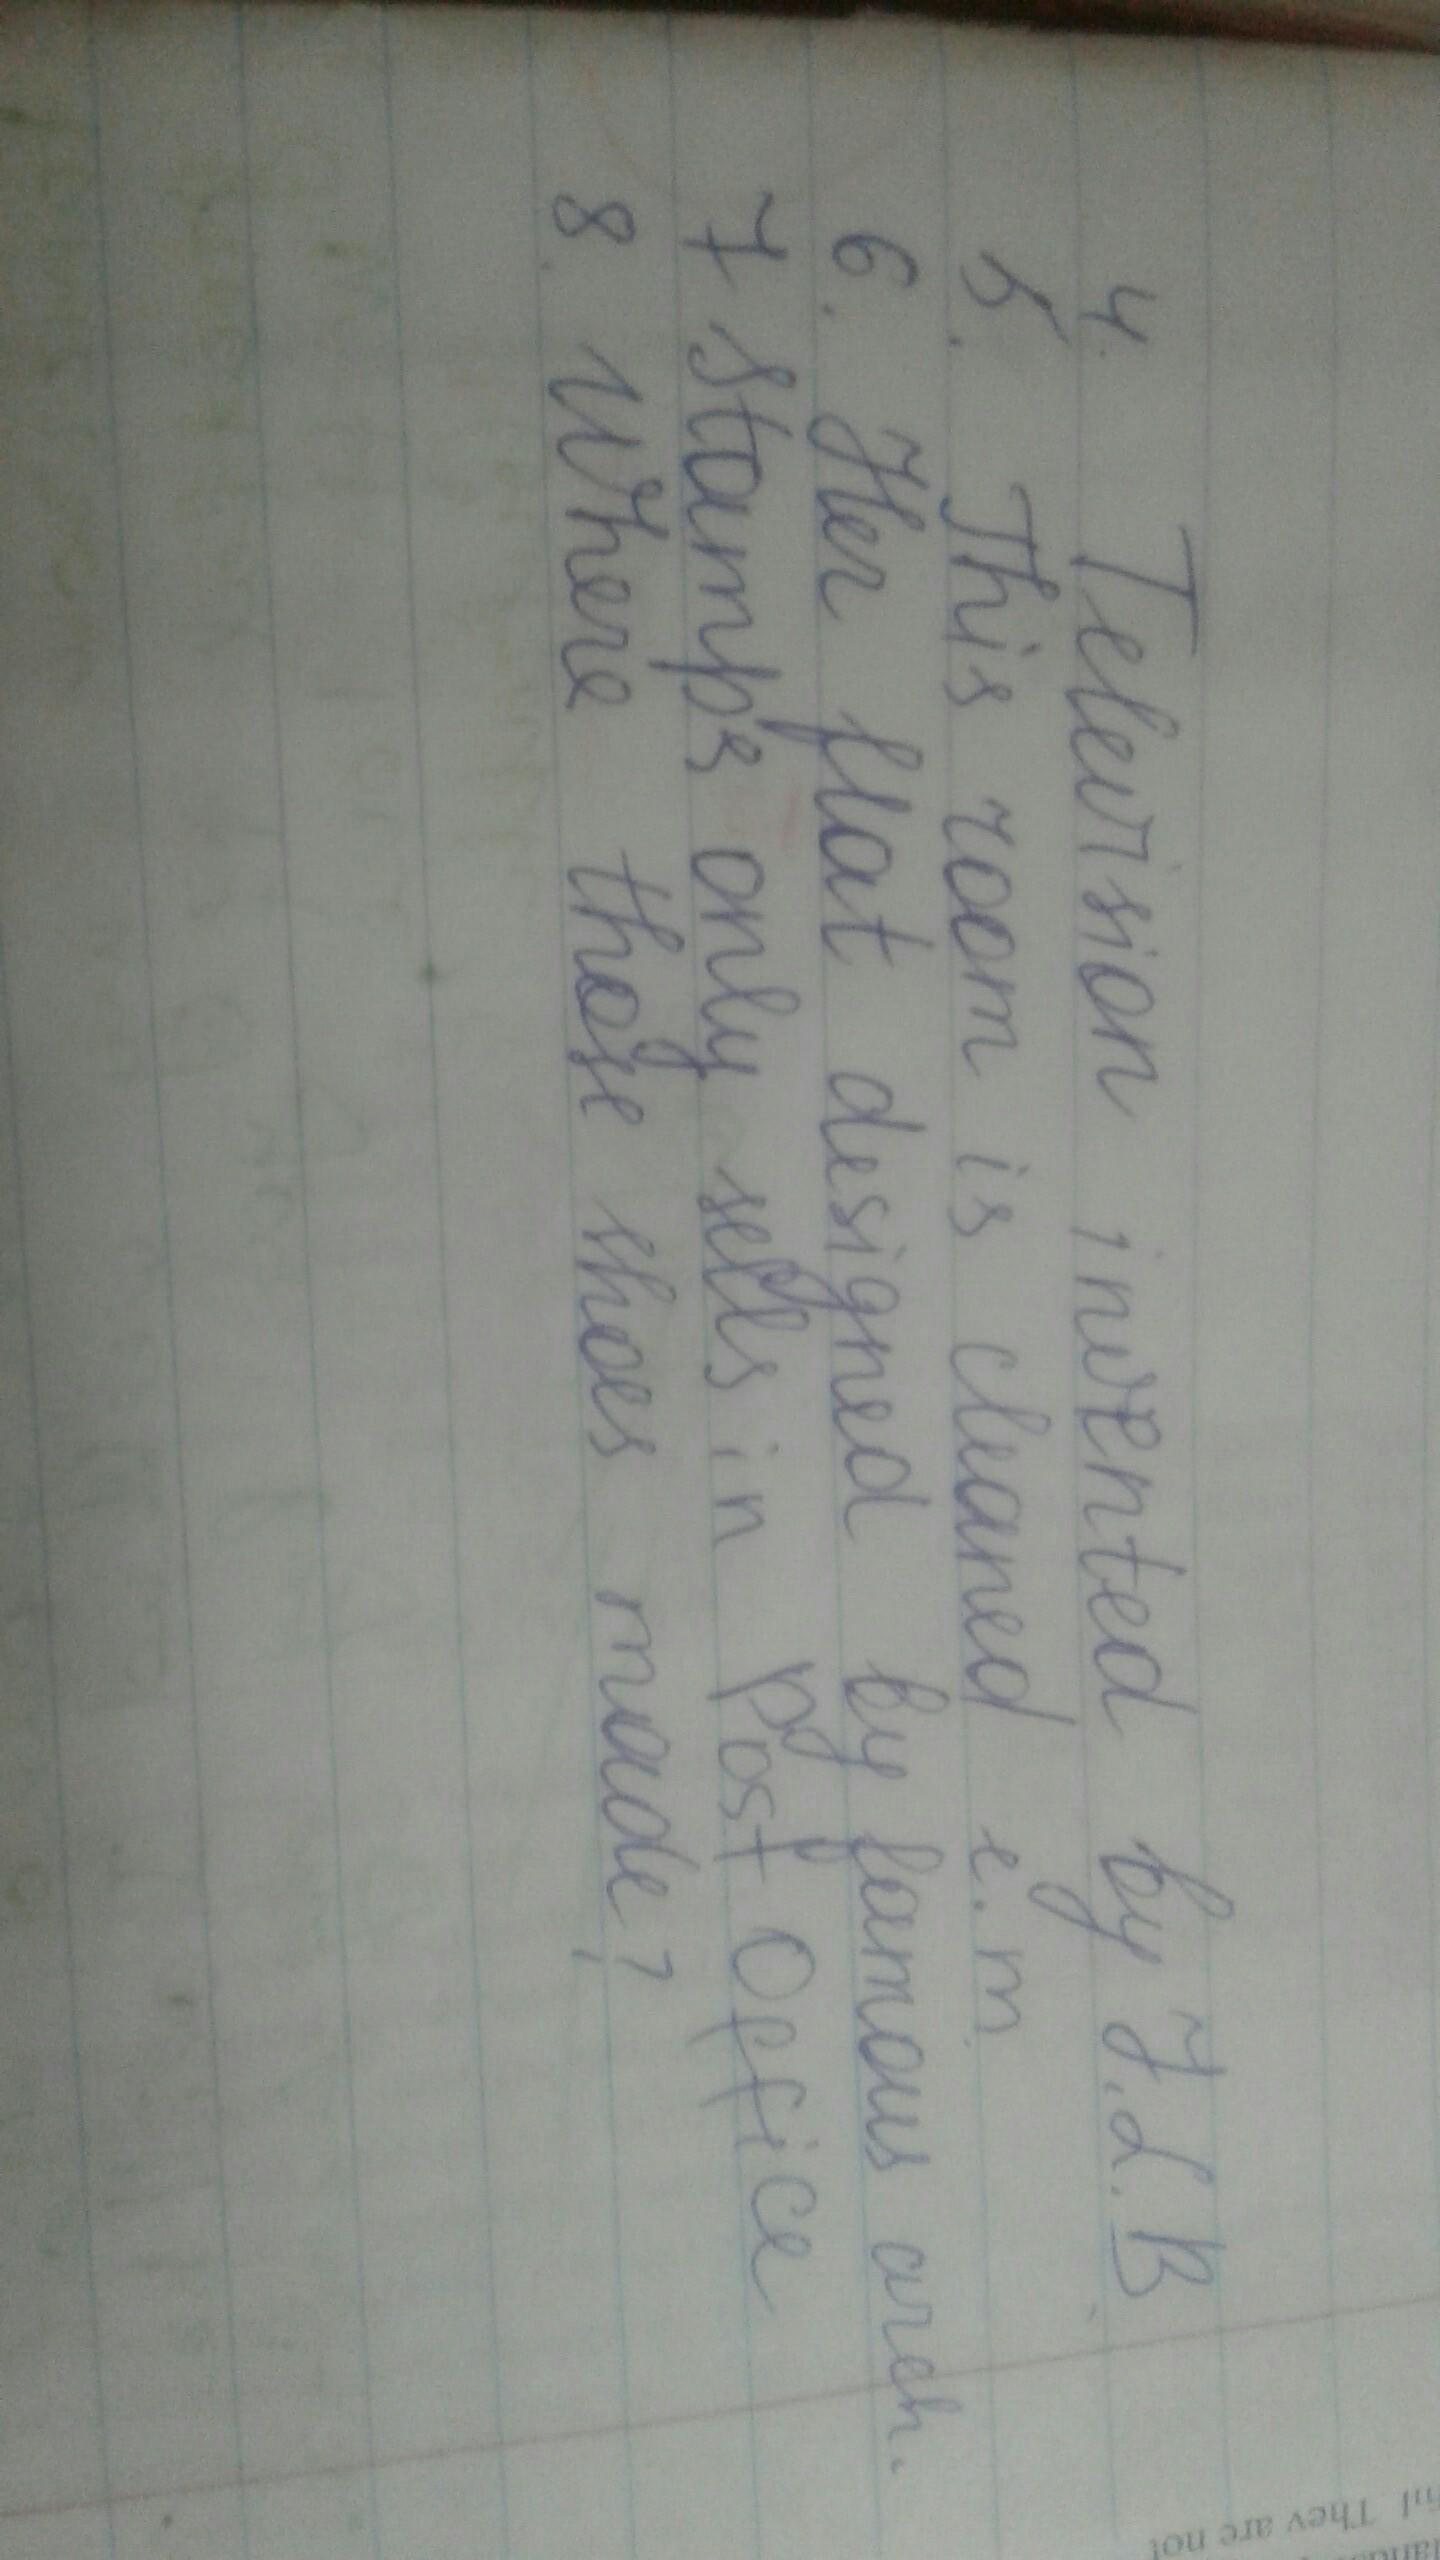 4. Television invented by J.L.B
5. This room is cleaned e.m
6. Her flat designed by famous arch.
7 Stamps only sells in post Office
8. Where those shoes made?
They are not